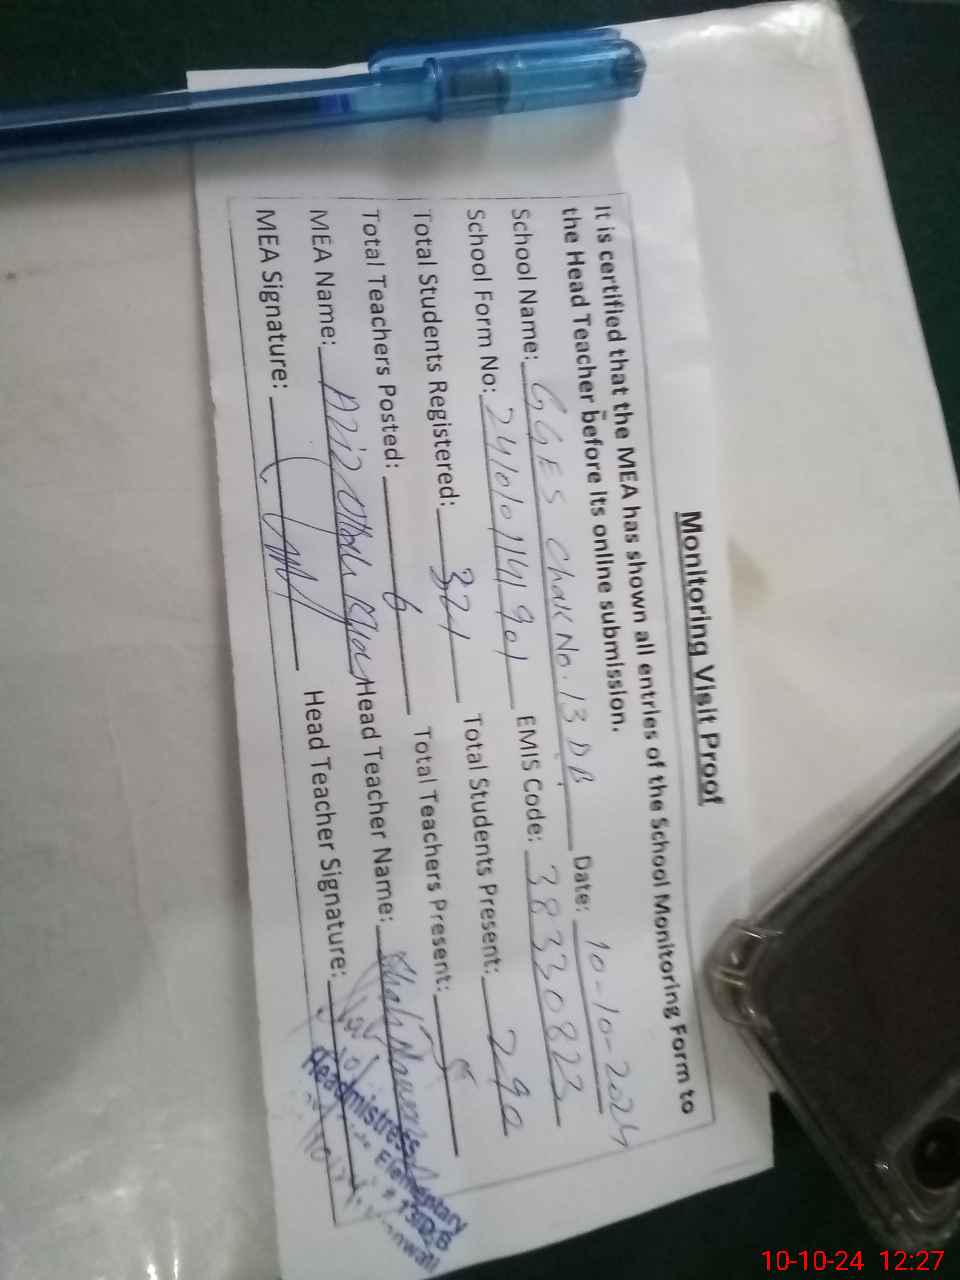 Monitoring Visit Proof
It is certified that the MEA has shown all entries of the School Monitoring Form to
the Head Teacher before its online submission.
School Name: GGES Chak No. 13 DB Date: 10-10-2024
School Form No: EMIS Code: 38330823
Total Students Registered: 321 Total Students Present: 290
Total Teachers Posted: 6 Total Teachers Present: 5
MEA Name: Head Teacher Name:
MEA Signature: Head Teacher Signature:
Headmistress
Elementary
13DB
10-10-24 12:27